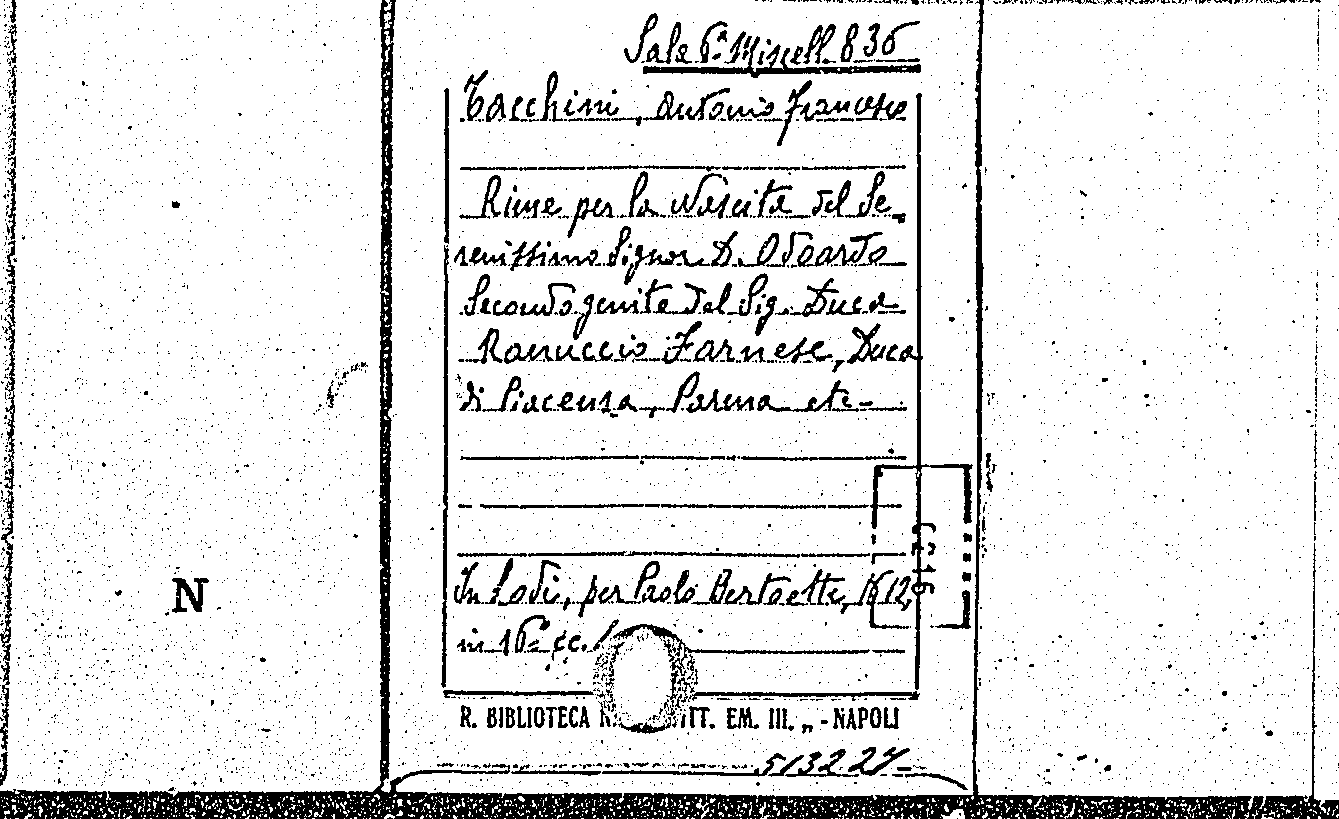 Sale 6ª Miscell. 836
Tacchini, Antonio Francesco
Rime per la Nascita del Se-
renissimo Signor D. Odoardo
Secondogenito del Sig. Duca
Ranuccio Farnese, Duca
di Piacenza, Parma etc-
In Lodi, per Paolo Bertoetti, 1612,
N
in 16° cc.
R. BIBLIOTECA ITT. EM. III. „ - NAPOLI
513224-